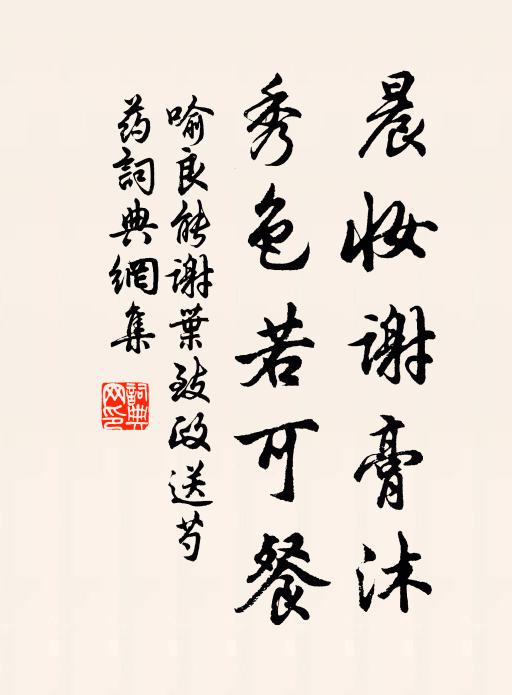 晨妆谢膏沐
秀色若可餐
喻良能谢葉致政送芍
药詞典網集
詞典
网印